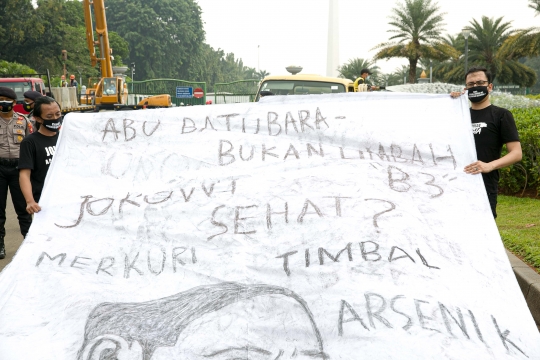 ABU BATUBARA-
BUKAN LIMBAH
"B3"
JOKOWI
SEHAT?
MERKURI TIMBAL
ARSENIK